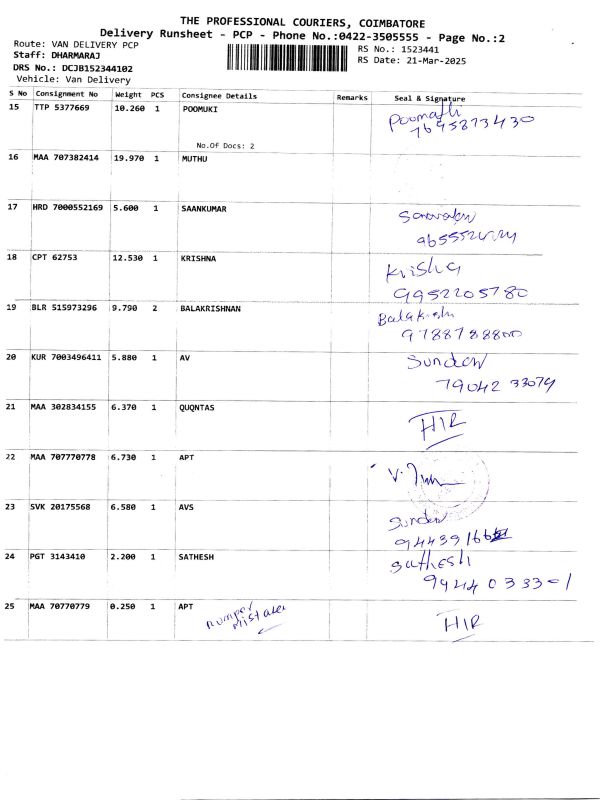 THE PROFESSIONAL COURIERS, COIMBATORE
Delivery Runsheet - PCP - Phone No.:0422-3505555 - Page No.:2
Route: VAN DELIVERY PCP
Staff: DHARMARAJ
DRS No.: DCJB152344102
Vehicle: Van Delivery
RS No.: 1523441
RS Date: 21-Mar-2025
S No Consignment No Weight PCS Consignee Details Remarks Seal & Signature
15 TTP 5377669 10.260 1 POOMUKI
No.Of Docs: 2
7695873430
16 MAA 707382414 19.970 1 MUTHU
17 HRD 7000552169 5.600 1 SAANKUMAR
18 CPT 62753 12.530 1 KRISHNA
Krishna
9952205780
19 BLR 515973296 9.790 2 BALAKRISHNAN
Balakrish
9788788800
20 KUR 7003496411 5.880 1 AV
Sundar
79042 33079
21 MAA 302834155 6.370 1 QUQNTAS
HIR
22 MAA 707770778 6.730 1 APT
23 SVK 20175568 6.580 1 AVS
Sundar
24 PGT 3143410 2.200 1 SATHESH
Sathesh
25 MAA 70770779 0.250 1 APT
numper
mistake
HIR